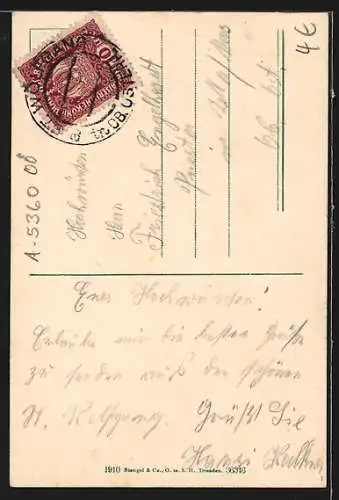 4€
A-5360 08
Hochwürden
Herrn
Friedrich Engelhardt
Priester
Euer Hochwürden!
Erlaube mir die besten Grüße
zu senden aus dem schönen
St. Wolfgang. Grüßt Sie
Hansi
1910 Stengel & Co., G. m. b. H., Dresden. 36346